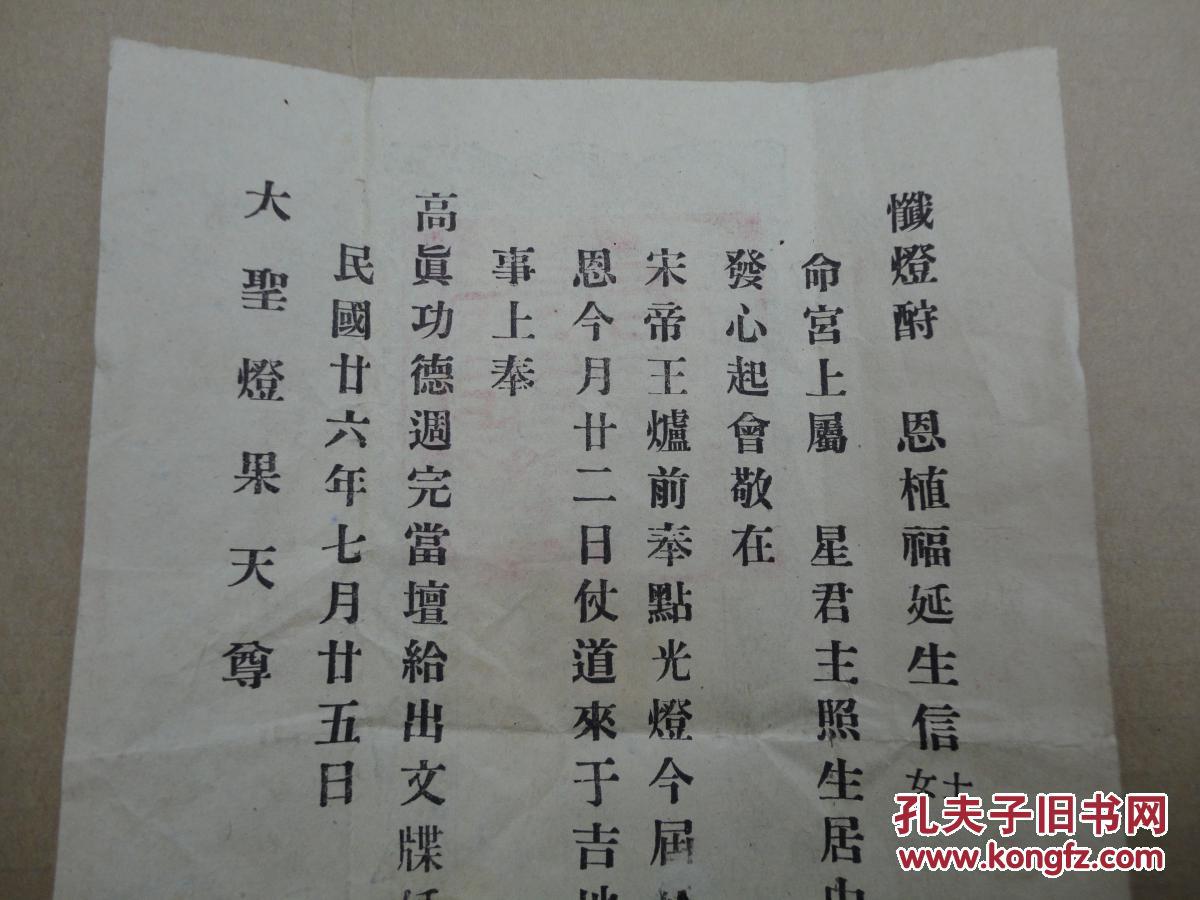 懺燈酧　恩植福延生信士女
命宮上屬　星君主照生居中
發心起會敬在
宋帝王爐前奉點光燈今屆
恩今月廿二日仗道來于吉地
事上奉
高眞功德週完當壇給出文牒
民國廿六年七月廿五日
大聖燈果天尊
孔夫子旧书网
www.kongfz.com